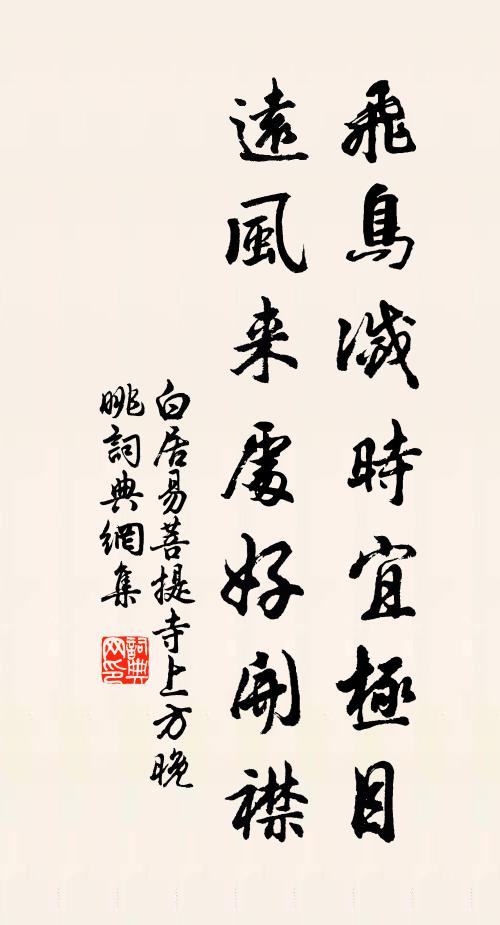 飛鳥滅時宜極目
遠風来處好開襟
白居易菩提寺上方晚
眺詞典網集
詞典
网印